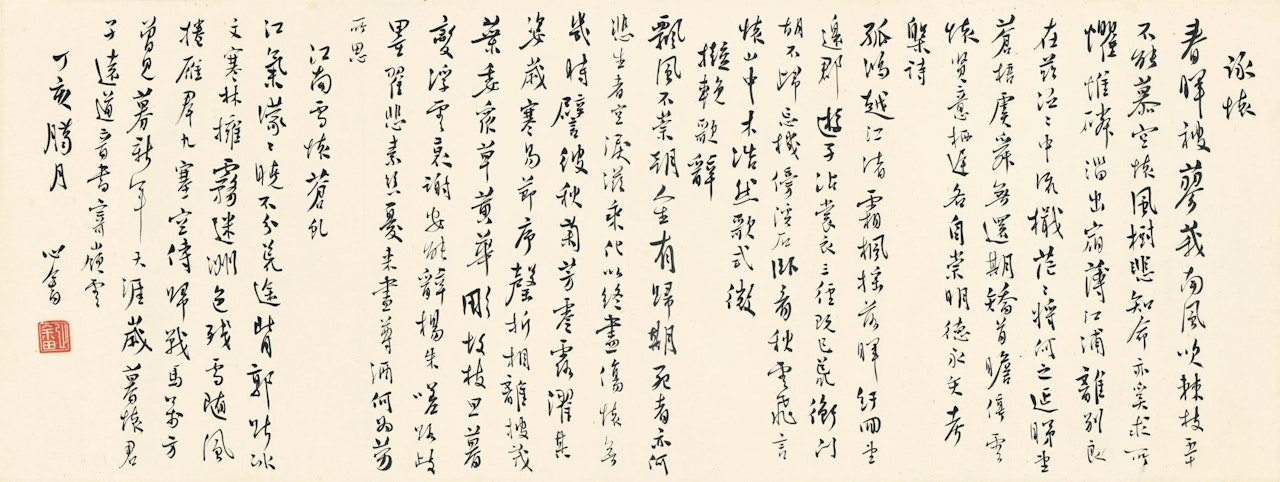 詠懷
春暉被蓼莪南風吹棘枝平
不能慕空懷風樹悲知命亦奚求所
懼惟磷淄出宿薄江浦離別良
在茲泛泛中流檝茫茫將何之延睇望
蒼梧虞舜無還期矯首瞻停雲
懷賢意栖遲各自崇明德永矢考
槃詩
孤鴻越江渚霜楓搖落暉紆回望
邊郡游子沾裳衣三徑既已荒衡門
胡不歸忘機傍溪石卧看秋雲飛言
懷山中木浩然歌式微
擬輓歌辭
飄風不崇朝人生有歸期死者亦何
悲生者空淚滋乘化以終盡傷懷無
幾時譬彼秋菊芳零露濯其
姿歲寒易節序磬折相離披茂
葉委衰草黃華彫故枝旦暮
變浮雲衰謝安能辭楊朱嗟路歧
墨翟悲素絲憂來盡尊酒何為勞
所思
江南雪懷蒼虬
江氣濛濛曉不分荒途背郭冰
文寒林擁霧迷洲色殘雪隨風
捲雁群九塞空傳歸戰馬萬方
曾見募新軍天涯歲暮懷君
子遠道音書寄嶺雲
丁亥臘月
心畬